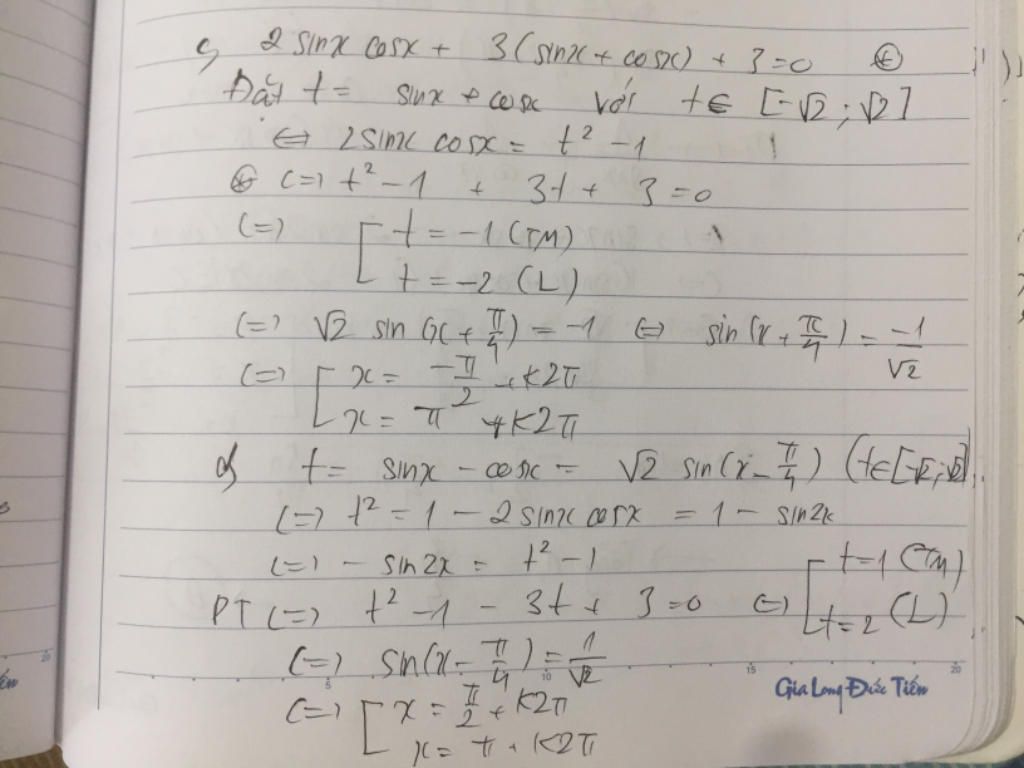 c, 2 sinx cosx + 3(sinx + cosx) + 3 = 0 (*)
Đặt t = sinx + cosx với t ∈ [-√2; √2]
⇔ 2sinx cosx = t² - 1
(*) (=) t² - 1 + 3t + 3 = 0
(=) [ t = -1 (TM)
t = -2 (L)
(=) √2 sin(x + π/4) = -1 ⇔ sin(x + π/4) = -1/√2
(=) [ x = -π/2 + k2π
x = π + k2π
d, t = sinx - cosx = √2 sin(x - π/4) (t∈[-√2;√2])
(=) t² = 1 - 2sinx cosx = 1 - sin2x
(=) - sin2x = t² - 1
PT (=) t² - 1 - 3t + 3 = 0 ⇔ [ t = 1 (TM)
t = 2 (L)
(=) sin(x - π/4) = 1/√2
5 10 15 20
Gia Long Đức Tiến
(=) [ x = π/2 + k2π
x = π + k2π
20